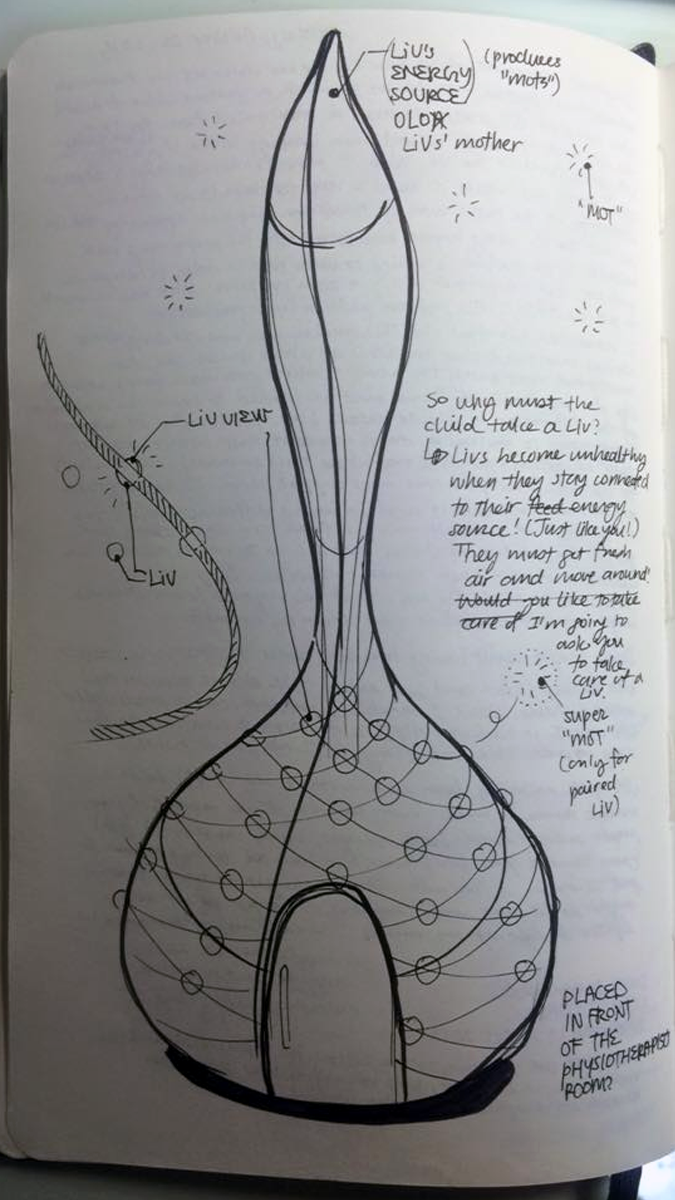 LIV'S
ENERGY
SOURCE
(produces
"mots")
OLOA
LIVs' mother
"MOT"
LIV VIEW
LIV
So why must the
child take a Liv?
Livs become unhealthy
when they stay connected
to their feed energy
source! (Just like you!)
They must get fresh
air and move around!
Would you like to take
care of I'm going to
ask you
to take
care of a
Liv.
super
"MOT"
(only for
paired
Liv)
PLACED
IN FRONT
OF THE
PHYSIOTHERAPIST
ROOM?